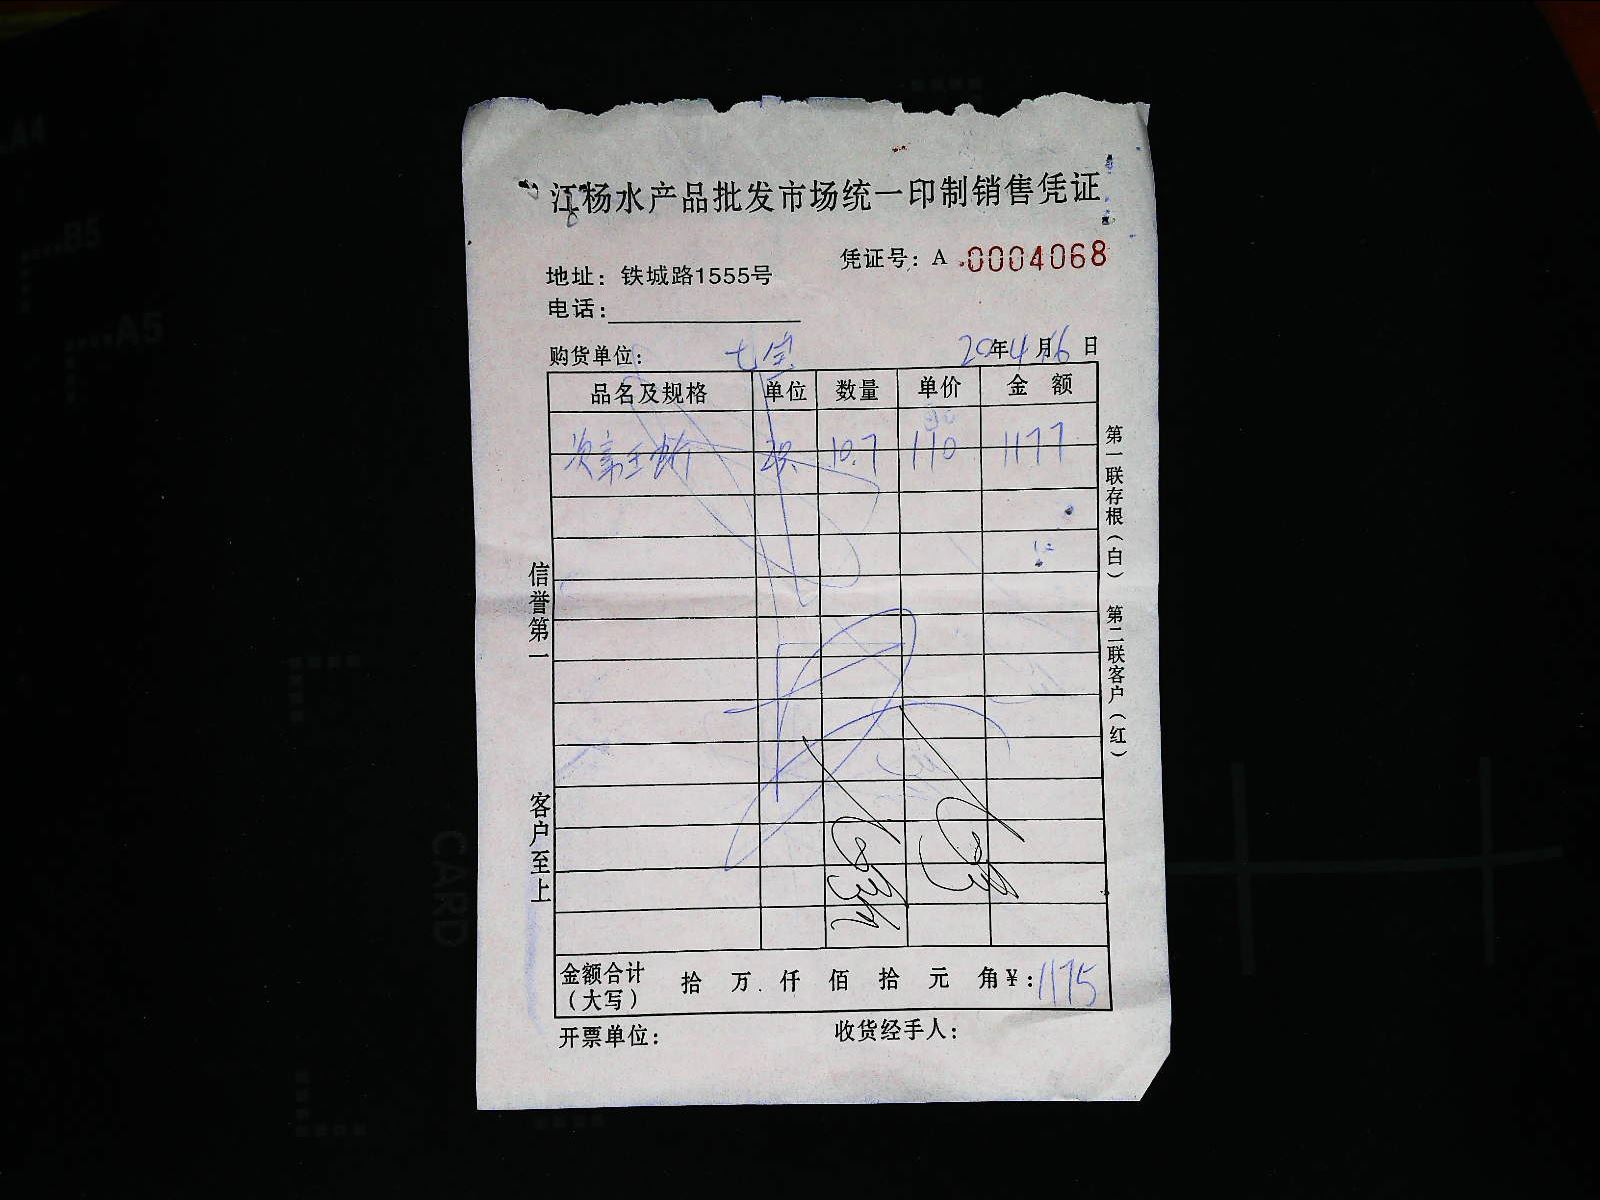 江杨水产品批发市场统一印制销售凭证
凭证号：A 0004068
地址：铁城路1555号
电话：
购货单位：七宝 20年4月16日
品名及规格 单位 数量 单价 金额
10.7 110 1177
金额合计（大写） 拾 万 仟 佰 拾 元 角 ¥：1175
开票单位： 收货经手人：
信誉第一
客户至上
第一联存根（白） 第二联客户（红）
A4
B5
A5
CARD